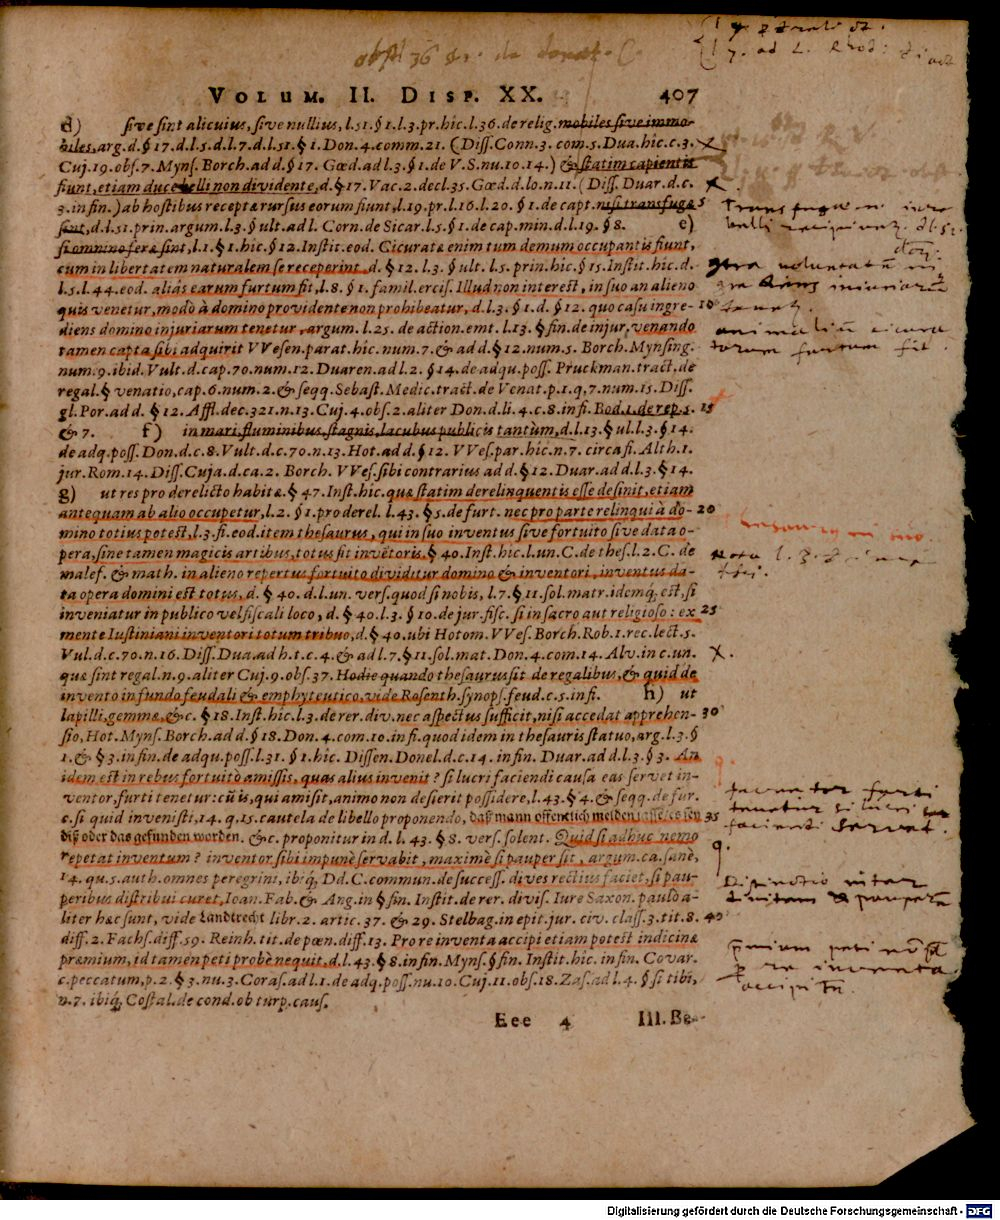 VOLUM. II. DISP. XX. 407
d) sive sint alicuius, sive nullius, l.51. §1.l.3.pr.hic.l.36.de relig.mobiles sive immo-
biles, arg.d.§17.d.l.5.d.l.7.d.l.51.§1. Don.4.comm.21. (Diss.Conn.3. com.5. Dua.hic.c.3.
Cuj.19.obs.7. Myns. Borch. ad d. §17. Gœd.ad l.3.§1.de V.S.nu.10.14.) & statim capientis
fiunt, etiam duce belli non dividente, d.§17. Vac.2. decl.35. Gœd.d.lo.n.11. (Diss. Duar.d.c.
3.in fin.) ab hostibus recepta rursus eorum fiunt, l.19.pr.l.16.l.20. §1. de capt. nisi transfugæ 5
sint, d.l.51. prin. argum.l.3. § ult. ad l. Corn. de Sicar.l.5.§1. de cap.min.d.l.19. §8. e)
si omnino feræ sint, l.1. §1.hic.§12.Instit.eod. Cicuratæ enim tum demum occupantis fiunt,
cum in libertatem naturalem se receperint, d. §12.l.3. § ult. l.5. prin.hic.§15.Instit.hic.d.
l.5.l.44.eod. aliàs earum furtum fit, l.8. §1. famil.ercis. Illud non interest, in suo an alieno
quis venetur, modò à domino providente non prohibeatur, d.l.3. §1.d. §12. quo casu ingre- 10
diens domino injuriarum tenetur, argum.l.25. de action.emt.l.13. §fin.de injur. venando
tamen capta sibi adquirit VVesen.parat.hic.num.7.& ad d.§12.num.5. Borch. Mynsing.
num.9.ibid. Vult.d.cap.70.num.12. Duaren.ad l.2. §14.de adqu.poss. Pruckman.tract.de
regal.§ venatio, cap.6.num.2.& seqq. Sebast. Medic.tract. de Venat.p.1.q.7.num.15. Diss.
gl. Por.ad d. §12. Affl.dec.321.n.13. Cuj.4.obs.2. aliter Don.d.li.4.c.8.in fi. Bod.1.de rep.5. 15
& 7. f) in mari, fluminibus, stagnis, lacubus publicis tantùm, d.l.13.§ul.l.3.§14.
de adq.poss. Don.d.c.8. Vult.d.c.70.n.13. Hot.ad d.§12. VVes.par.hic.n.7. circa fi. Alth.1.
jur.Rom.14. Diss. Cuja.d.ca.2. Borch. VVes.sibi contrarius ad d.§12. Duar.ad d.l.3.§14.
g) ut res pro derelicto habitæ. §47. Inst.hic.quæ statim derelinquentis esse desinit, etiam
antequam ab alio occupetur, l.2. §1.pro derel. l.43.§5.de furt. nec pro parte relinqui à do- 20
mino totius potest, l.3.fi.eod.item thesaurus, qui in suo inventus sive fortuito sive data o-
pera, sine tamen magicis artibus, totus fit invētoris, §40.Inst.hic.l.un.C.de thes.l.2.C. de
malef. & math. in alieno repertus fortuito dividitur domino & inventori, inventus da-
ta opera domini est totus, d. §40. d.l.un. vers. quod si nobis, l.7.§11.sol.matr. idemq; est, si
inveniatur in publico vel fiscali loco, d. §40.l.3. §10.de jur.fisc. si in sacro aut religioso: ex 25
mente Iustiniani inventori totum tribuo, d.§40.ubi Hotom. VVes. Borch. Rob.1.rec.lect.5.
Vul.d.c.70.n.16. Diss. Dua.ad h.t.c.4.& ad l.7.§11.sol.mat. Don.4.com.14. Alv.in c.un.
quæ sint regal.n.9.aliter Cuj.9.obs.37. Hodie quando thesaurus sit de regalibus, & quid de
invento in fundo feudali & emphyteutico, vide Rosenth.synops.feud.c.5.in fi. h) ut
lapilli, gemmæ, &c. §18. Inst.hic.l.3.de rer.div.nec aspectus sufficit, nisi accedat apprehen- 30
sio, Hot. Myns. Borch. ad d.§18. Don.4.com.10.in fi. quod idem in thesauris statuo, arg.l.3.§
1.& §3.in fin.de adqu.poss.l.31. §1.hic. Dissen. Donel.d.c.14. infin. Duar.ad d.l.3.§3. An
idem est in rebus fortuitò amissis, quas alius invenit? si lucri faciendi causa eas servet in-
ventor, furti tenetur: cū is, qui amisit, animo non desierit possidere, l.43.§4.& seqq.de fur.
c. si quid invenisti, 14.q.15. cautela de libello proponendo, daß mann offentlich melden lasse/ es sey 35
diß oder das gefunden worden. &c. proponitur in d. l. 43. §8. vers. solent. Quid si adhuc nemo
repetat inventum? inventor sibi impunè servabit, maximè si pauper sit, argum.ca.sanè,
14.qu.5.auth.omnes peregrini, ibiq; Dd.C.commun.de success. dives rectius faciet, si pau-
peribus distribui curet, Ioan. Fab. & Ang. in § fin. Instit. de rer. divis. Iure Saxon. paulò a-
liter hæc sunt, vide Landtrecht libr.2. artic. 37. & 29. Stelbag.in epit.jur.civ.class.3.tit.8. 40
diff.2. Fachs.diff.59. Reinh.tit.de pœn.diff.13. Pro re inventa accipi etiam potest indicinæ
præmium, id tamen peti probè nequit, d.l.43.§8.in fin. Myns.§fin. Instit.hic.in fin. Covar.
c.peccatum, p.2. §3.nu.3. Coras.ad l.1.de adq.poss.nu.10. Cuj.11.obs.18. Zas.ad l.4. § si tibi,
n.7. ibiq; Costal.de cond.ob turp.caus.
Eee 4 III. Be-
inventor furti
tenetur si lucri
facienti servat.
Distinctio inter
Digitalisierung gefördert durch die Deutsche Forschungsgemeinschaft - DFG